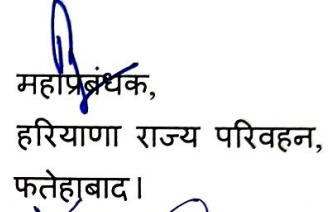 महाप्रबंधक,
हरियाणा राज्य परिवहन,
फतेहाबाद।